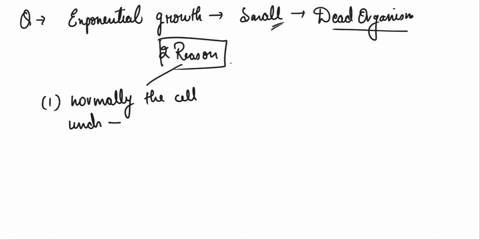 Q → Exponential growth → Small → Dead Organism
2 Reason
(1) normally the cell
undr —